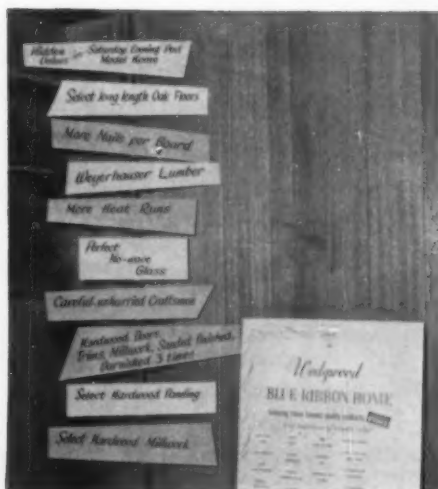 Hidden Values in Saturday Evening Post
Model Home
Select long length Oak Floors
More Nails per Board
Weyerhauser Lumber
More Heat Runs
Perfect
No-wave
Glass
Careful-unhurried Craftsmen
Hardwood Doors,
Trims, Millwork, Sanded, Polished,
Varnished 3 times
Select Hardwood Paneling
Select Hardwood Millwork
Wedgwood
BLUE RIBBON HOME